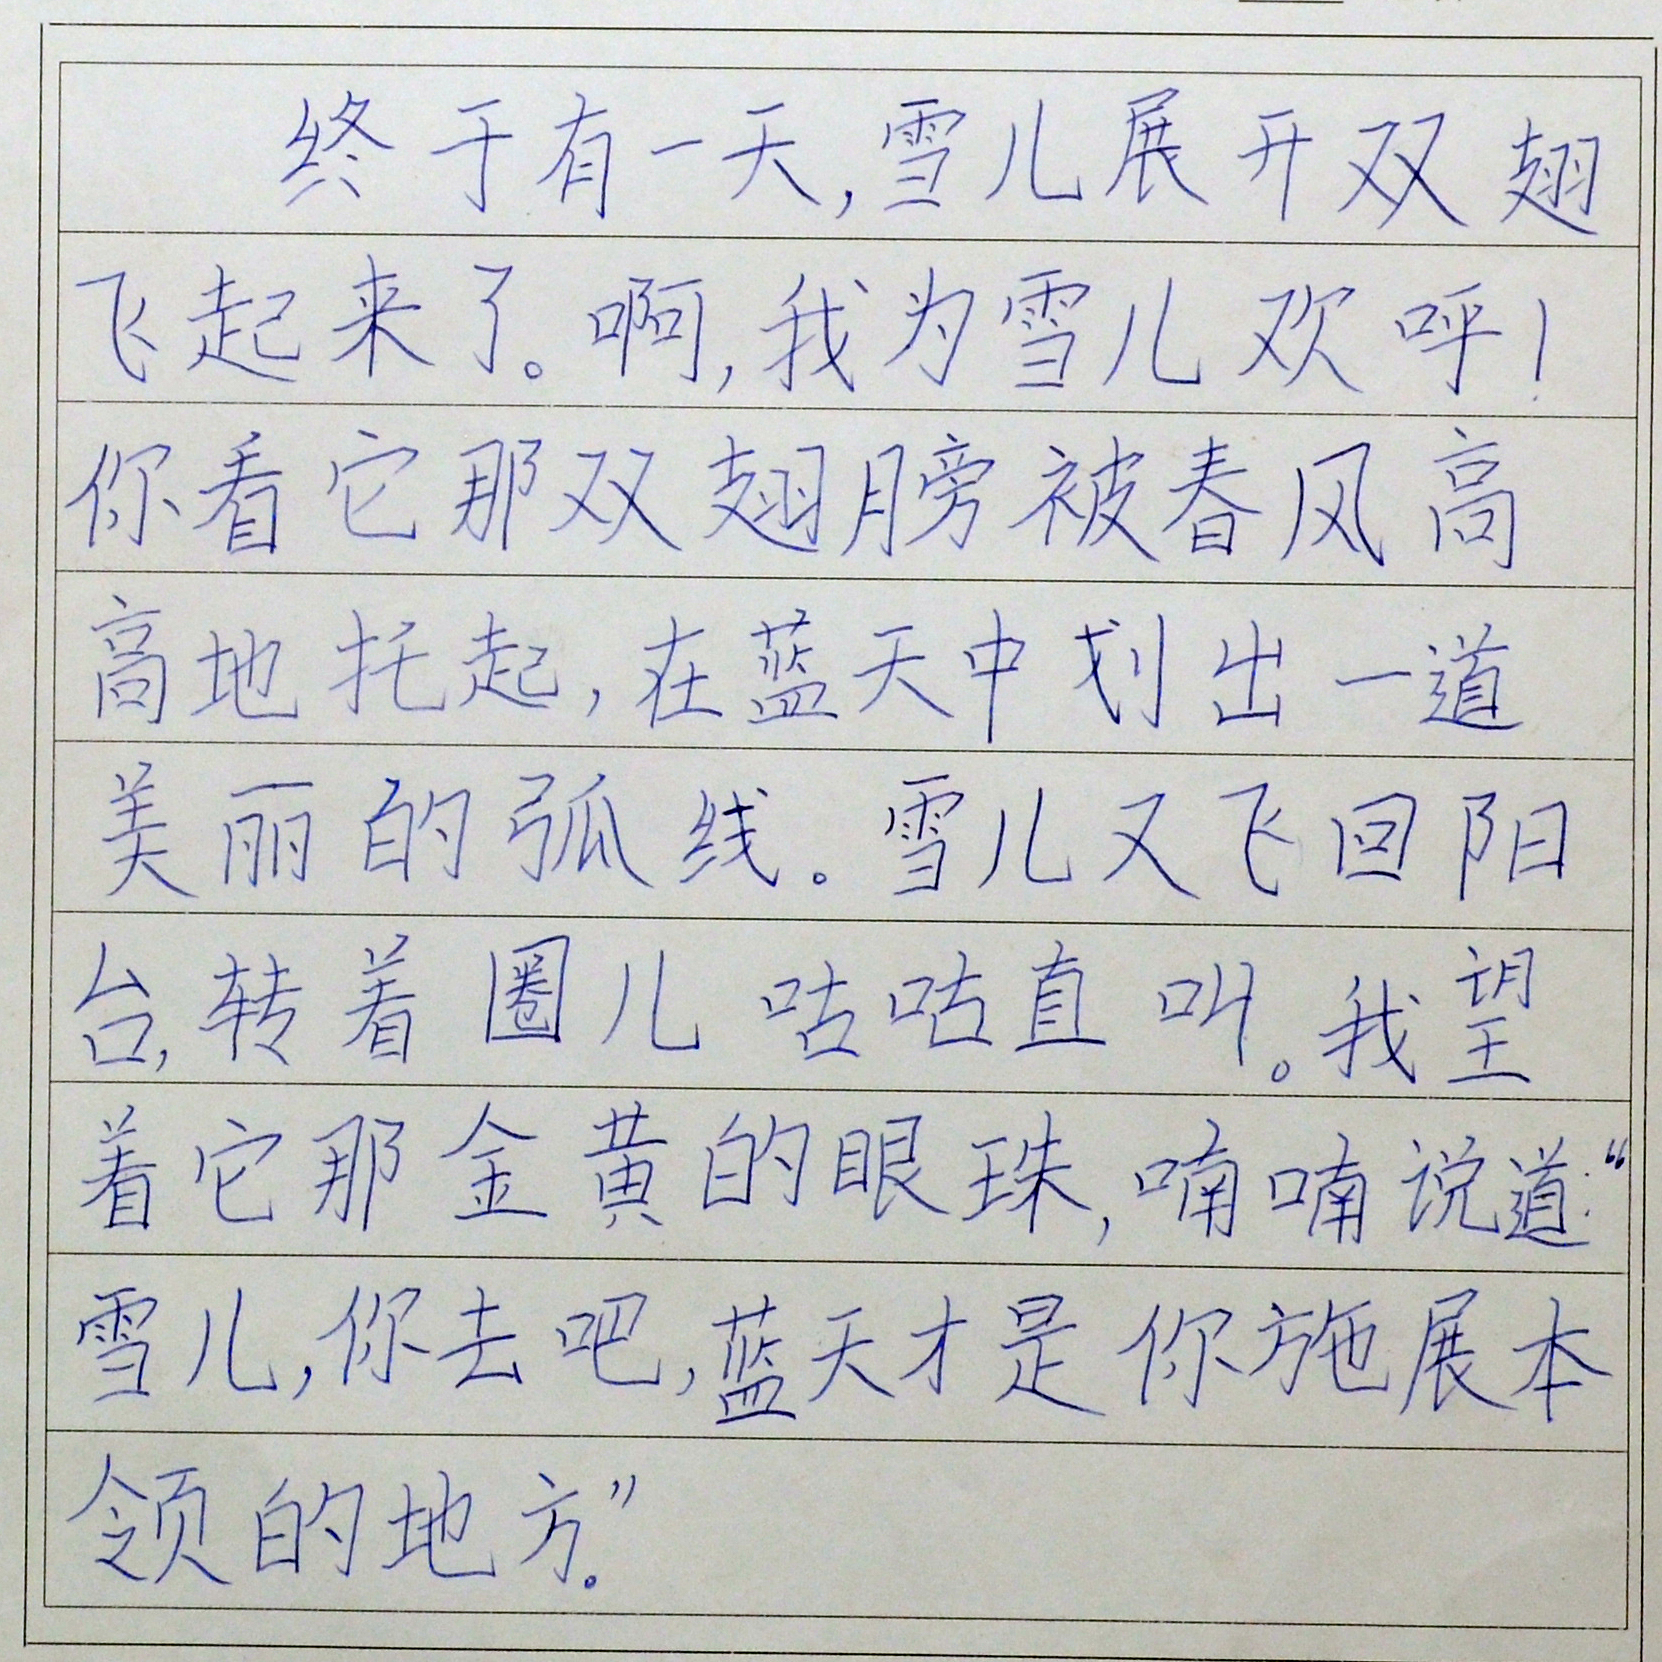 终于有一天,雪儿展开双翅
飞起来了。啊,我为雪儿欢呼!
你看它那双翅膀被春风高
高地托起,在蓝天中划出一道
美丽的弧线。雪儿又飞回阳
台,转着圈儿咕咕直叫。我望
着它那金黄的眼珠,喃喃说道:“
雪儿,你去吧,蓝天才是你施展本
领的地方。”